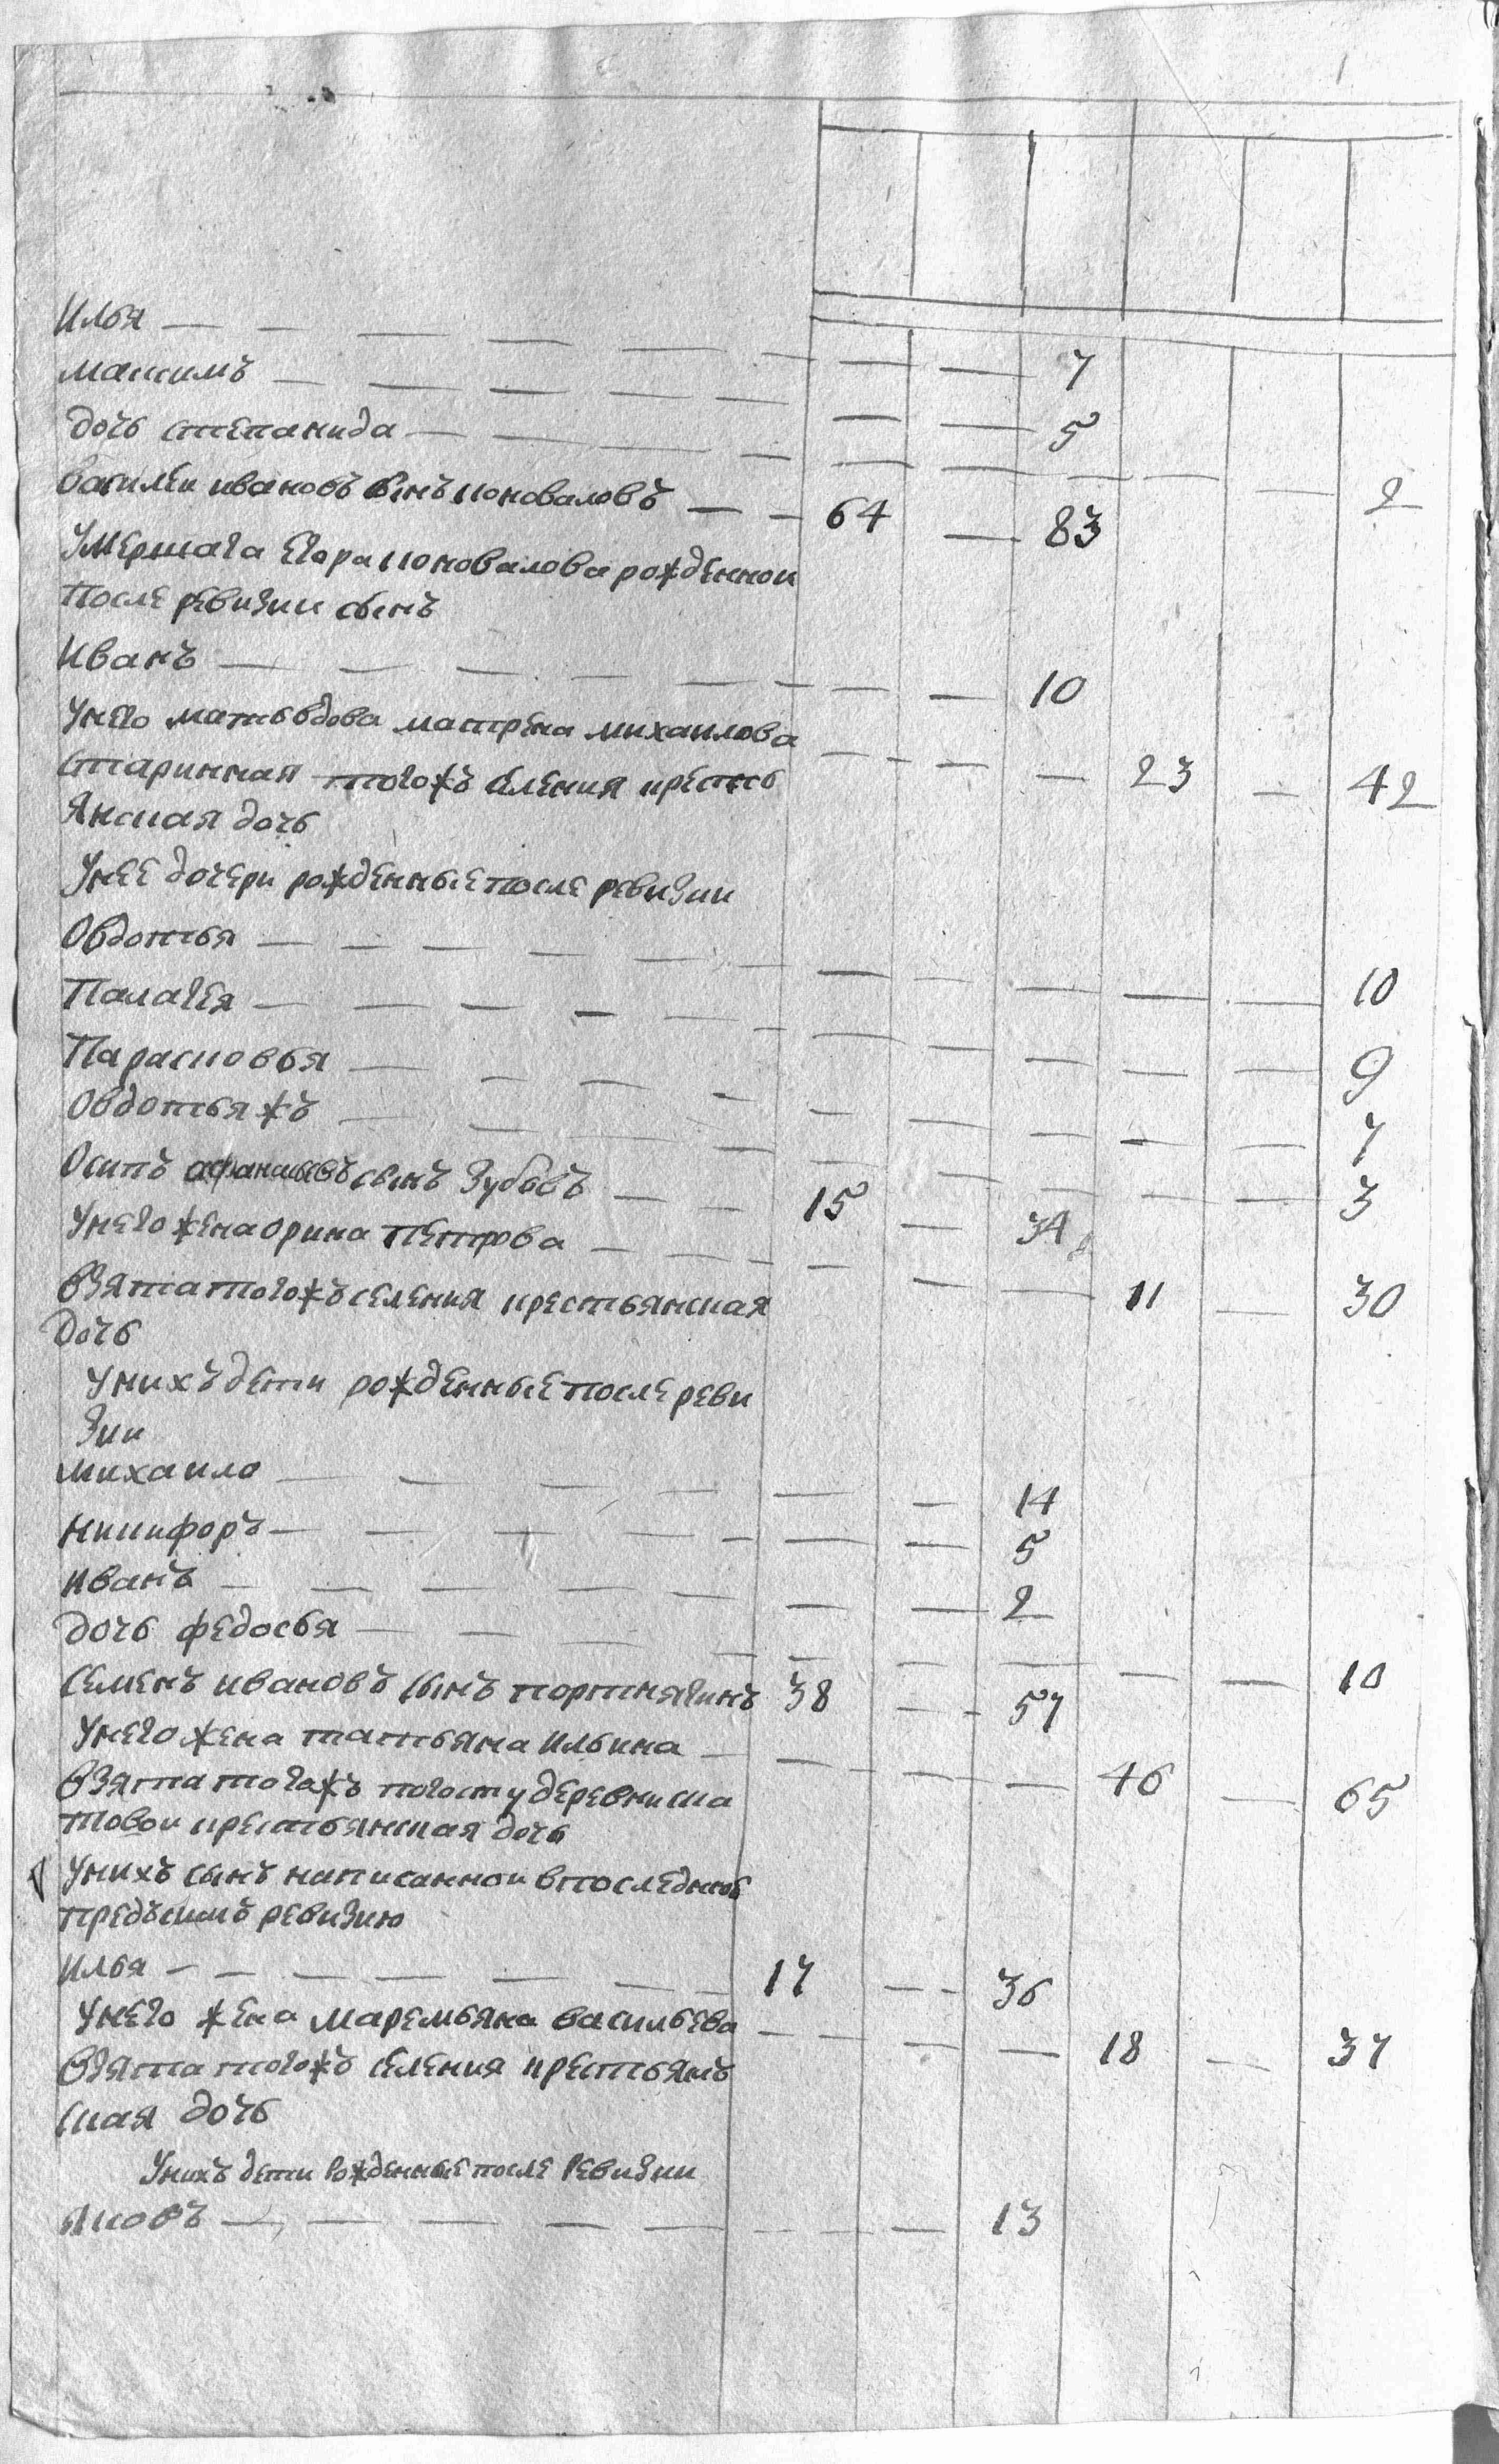 1
Илья — — — — — — — — 7
максимъ — — — — — — — 5
дочь степанида — — — — — — — — 2
василеи ивановъ сынъ коноваловъ — — 64 — 83
умершага Егора коновалова рожденнои
после ревизии сынъ
Иванъ — — — — — — — — 10
унего мать вдова матрена михаилова — — — — 23 — 42
старинная тогожъ селения кресть
янская дочь
унее дочери рожденные после ревизии
Овдотья — — — — — — — — — — 10
Палагея — — — — — — — — — — — 9
Парасковья — — — — — — — — — 7
Овдотья жъ — — — — — — — — — 3
Осипъ афанасьевъ сынъ Зубовъ — — 15 — 34
унего жена орина петрова — — — — — — 11 — 30
взята тогожъ селения крестьянская
дочь
унихъ дети рожденные после реви
зии
михаило — — — — — — 14
никифоръ — — — — — — — 5
иванъ — — — — — — — 2
дочь федосья — — — — — — — — — 10
семенъ ивановъ сынъ портнягинъ 38 — - 57
унего жена татьяна ильина — — — — — 46 — 65
взята тогажъ погосту деревни
товои крестьянская дочь
унихъ сынъ написаннои впоследнюю
предъсимъ ревизию
илья — — — — — — — 17 — - 36
унего жена маремьяна васильева — — — — 18 — 37
взята тогожъ селения крестьянъ
ская дочь
унихъ дети рожденные после ревизии
яковъ — — — — — — — — 13